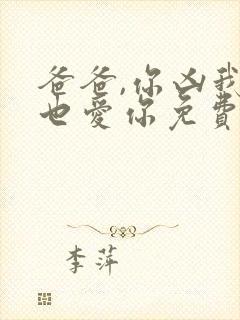 爸爸,你凶我
也爱你免費
李萍